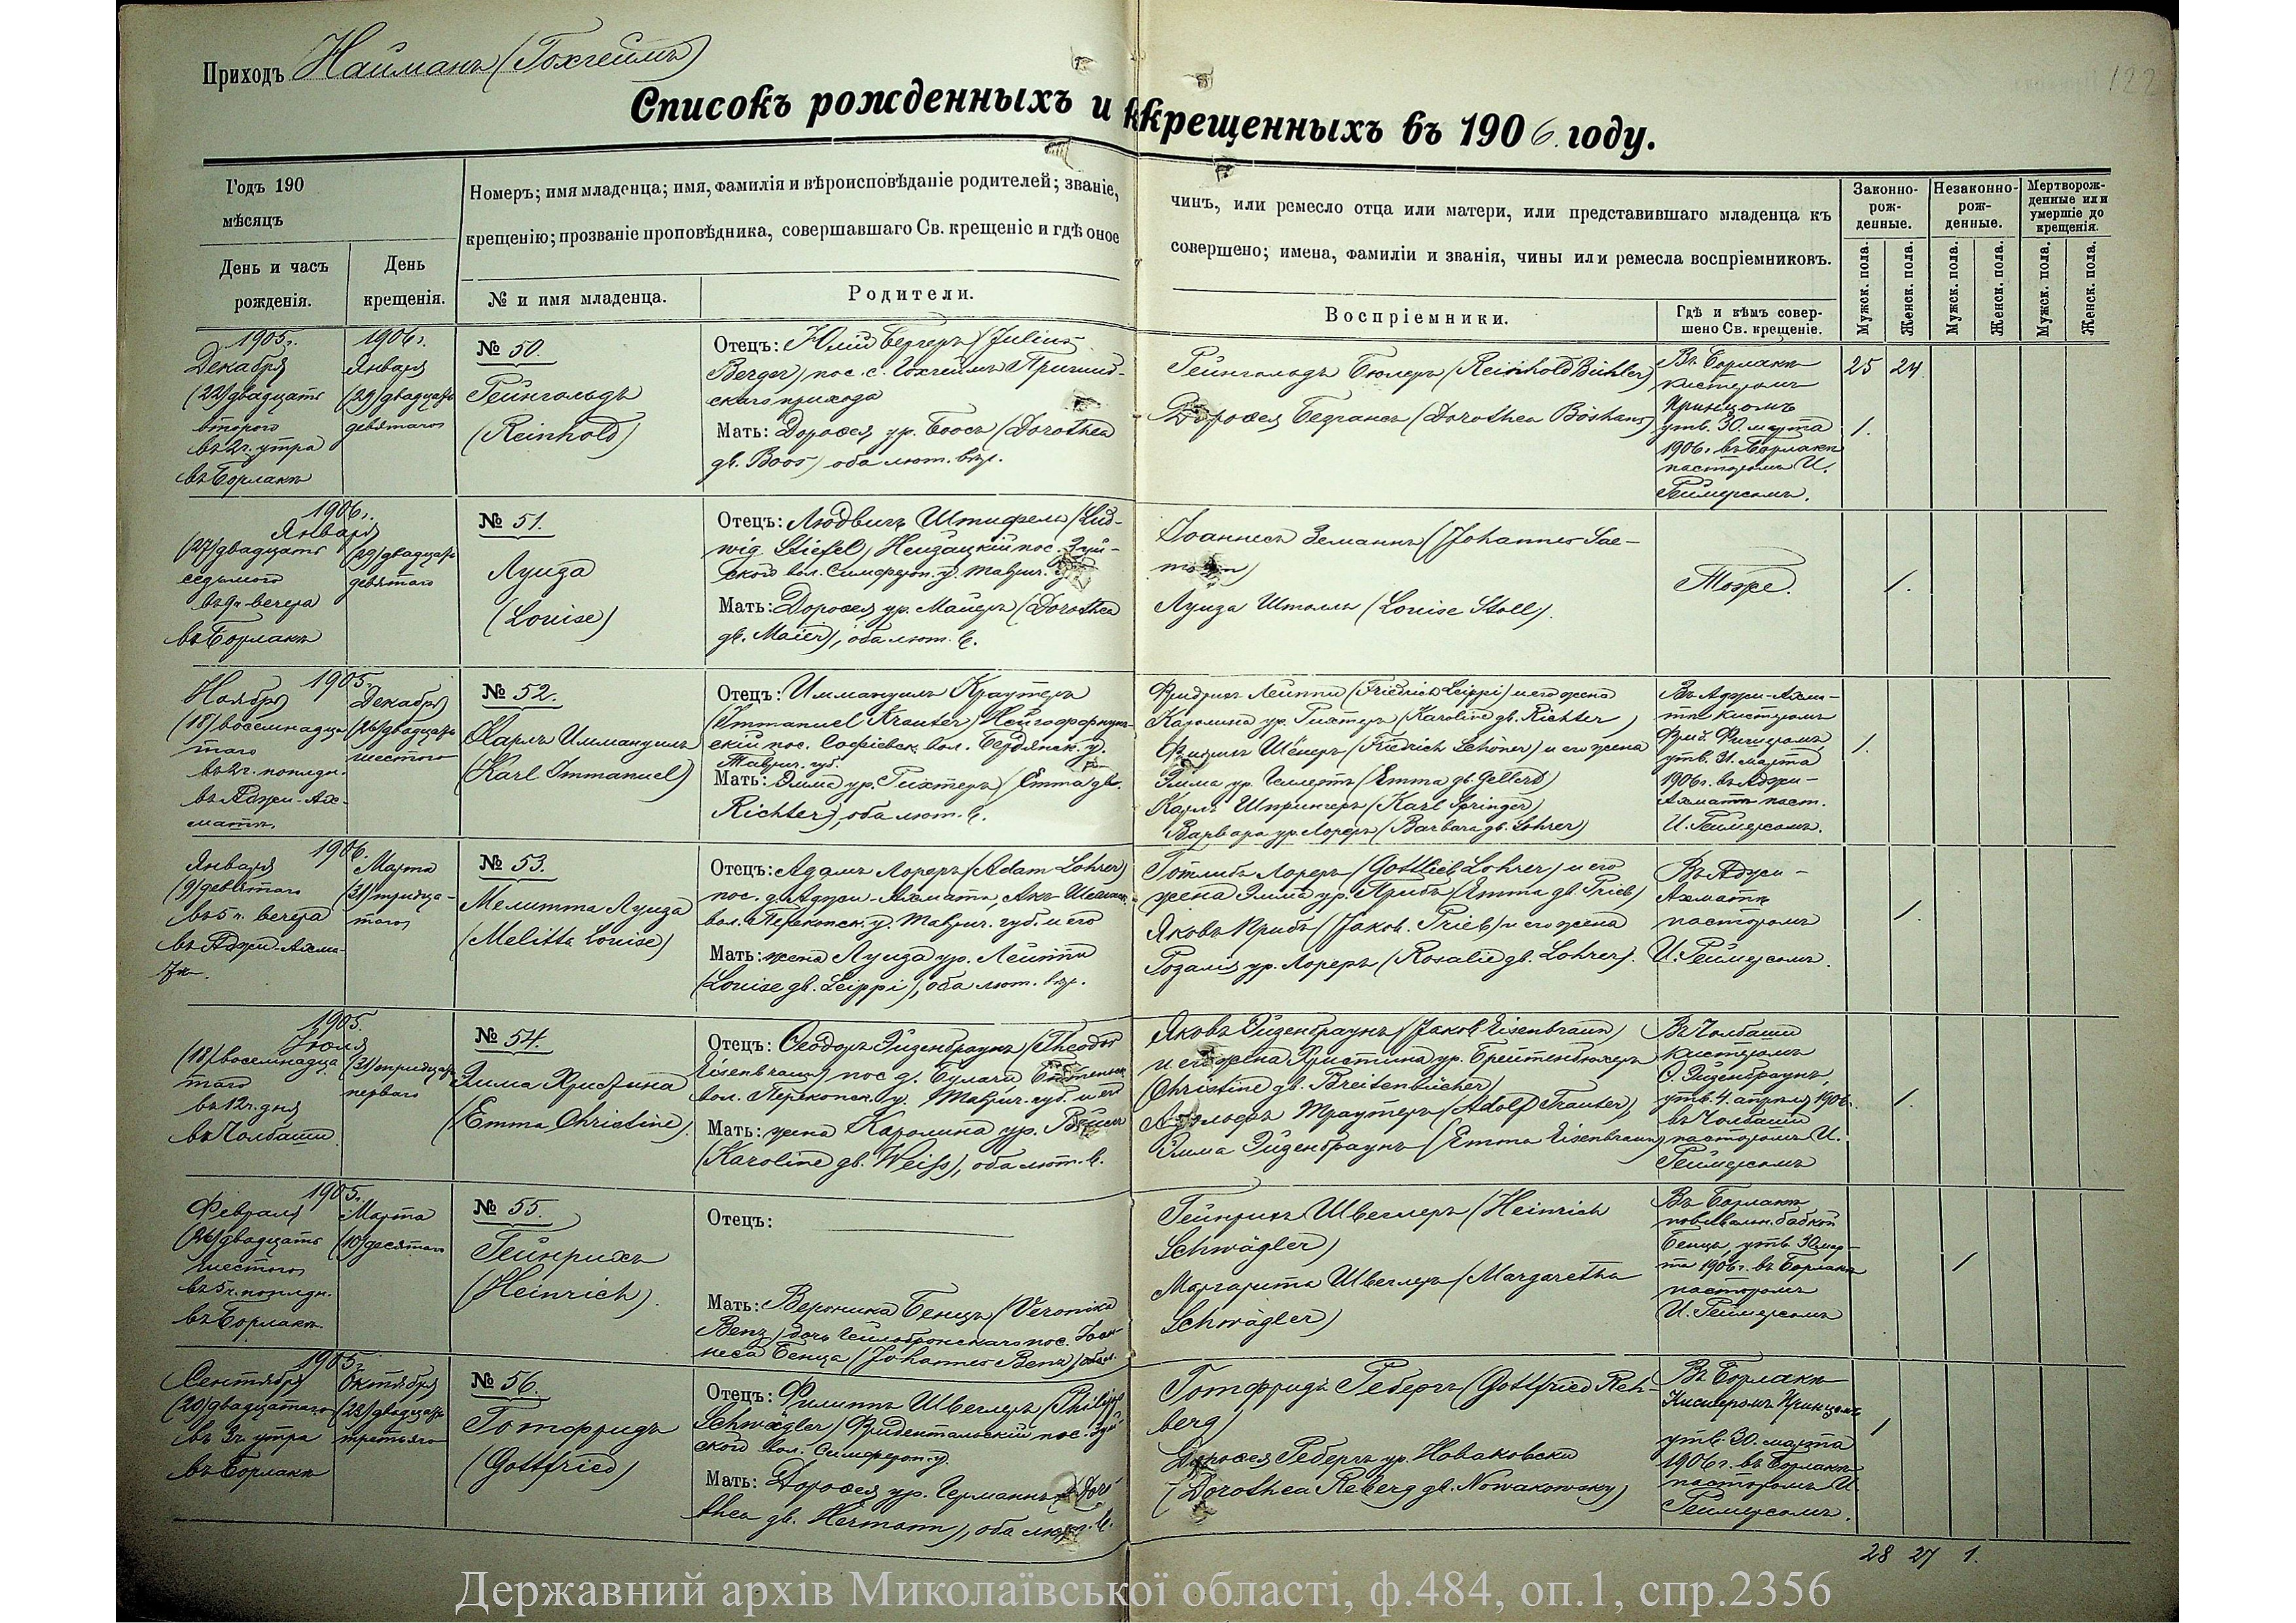 Приходъ Найманъ (Гохгеймъ)
122
Списокъ рожденныхъ и крещенныхъ въ 1906 году.
Годъ 190
мѣсяцъ
День и часъ
рожденія.
День
крещенія.
Номеръ; имя младенца; имя, фамилія и вѣроисповѣданіе родителей; званіе,
крещенію; прозваніе проповѣдника, совершавшаго Св. крещеніе и гдѣ оное
№ и имя младенца.
Родители.
чинъ, или ремесло отца или матери, или представившаго младенца къ
совершено; имена, фамиліи и званія, чины или ремесла воспріемниковъ.
Воспріемники.
Гдѣ и кѣмъ совер-
шено Св. крещеніе.
Законно-
рож-
денные.
Незаконно-
рож-
денные.
Мертворож-
денные или
умершіе до
крещенія.
Мужск. пола.
Женск. пола.
Мужск. пола.
Женск. пола.
Мужск. пола.
Женск. пола.
1905г.
Декабря
(22) двадцать
второго
въ 2ч. утра
въ Борлакъ
1906г.
Января
(29) двадцать
девятаго
№ 50.
Рейнгольдъ
(Reinhold)
Отецъ: Юлій Бергеръ (Julius
Berger) пос. с. Гохгеймъ Пришиб-
скаго прихода
Мать: Дороѳея ур. Боосъ (Dorothea
gb. Boos) оба лют. вѣр.
Рейнгольдъ Бюлеръ (Reinhold Bühler)
Дороѳея Бедгансъ (Dorothea Böshans)
Въ Борлакѣ
кистеромъ
Принцомъ
утв. 30. марта
1906г. въ Борлакѣ
пасторомъ И.
Реймерсомъ.
25 24
1.
1906г.
Января
(27) двадцать
седьмого
въ 9ч. вечера
въ Борлакѣ
(29) двадцать
девятаго
№ 51.
Луиза
(Louise)
Отецъ: Людвигъ Штифель (Lud-
wig Stiefel) Нейзацкій пос. Зуй-
ской вол. Симфероп. у. Таврич.
Мать: Дороѳея ур. Майеръ (Dorothea
gb. Maier), оба лют. в.
Іоаннесъ Земаннъ (Johannes Sae-
mann)
Луиза Штолль (Louise Stoll).
Тоже.
1.
1905г.
Ноября
(18) восемнадца
таго
въ 2ч. пополдн.
въ Аджи-Ах-
матъ.
Декабря
(26) двадцать
шестого
№ 52.
Карлъ Иммануилъ
(Karl Immanuel)
Отецъ: Иммануилъ Краутеръ
(Immanuel Krauter) Нейгофнунг-
скій пос. Софіевск. вол. Бердянск. у.
Таврич. губ.
Мать: Эмма ур. Рихтеръ (Emma gb.
Richter), оба лют. в.
Фридрихъ Лейппи (Friedrich Leippi) и его жена
Каролина ур. Рихтеръ (Karoline gb. Richter)
Фридрихъ Шёнеръ (Friedrich Schöner) и его жена
Эмма ур. Геллертъ (Emma gb. Gellert)
Карлъ Шпрингеръ (Karl Springer)
Варвара ур. Лореръ (Barbara gb. Lohrer)
Въ Аджи-Ахма-
тѣ кистеромъ
утв. 31. марта
1906г. въ Аджи-
Ахматѣ паст.
И. Реймерсомъ.
1.
1906.
Января
(9) девятаго
въ 5ч. вечера
въ Аджи-Ахма-
тѣ.
Марта
(31) тридца-
таго
№ 53.
Мелитта Луиза
(Melitta Louise)
Отецъ: Адамъ Лореръ (Adam Lohrer)
пос. д. Аджи-Ахматъ, Акъ-Шеихск.
вол. Перекопск. у. Таврич. губ. и его
Мать: жена Луиза ур. Лейппи
(Louise gb. Leippi), оба лют. вѣр.
Готлибъ Лореръ (Gottlieb Lohrer) и его
жена Эмма ур. Прибъ (Emma gb. Prieb)
Яковъ Прибъ (Jakob Prieb) и его жена
Розалія ур. Лореръ (Rosalie gb. Lohrer).
Въ Аджи-
Ахматѣ
пасторомъ
И. Реймерсомъ.
1.
1905.
Іюля
(18) восемнадца
таго
въ 12ч. дня
въ Чолбаши
(31) тридцать
перваго
№ 54.
Эмма Христина
(Emma Christine).
Отецъ: Ѳеодоръ Эйзенбраунъ (Theodor
Eisenbraun) пос. д.
вол. Перекопск. у. Таврич. губ. и его
Мать: жена Каролина ур. Вейсъ
(Karoline gb. Weiss), оба лют. в.
Яковъ Эйзенбраунъ (Jakob Eisenbraun)
и его жена Христина ур. Брейтенбюхеръ
(Christine gb. Breitenbücher)
Адольфъ Траутеръ (Adolf Trauter),
Эмма Эйзенбраунъ (Emma Eisenbraun)
Въ Чолбаши
кистеромъ
Эйзенбраунъ,
утв. 4. апрѣля 1906г.
въ Чолбаши
пасторомъ И.
Реймерсомъ
1.
1905г.
Февраля
(26) двадцать
шестого
въ 5ч. пополдн.
въ Борлакѣ.
Марта
(10) десятаго
№ 55.
Гейнрихъ
(Heinrich).
Отецъ:
Мать: Вероника Бенцъ (Veronika
Benz) дочь Гейльбронскаго пос. Іоан-
неса Бенца (Johannes Benz)
Гейнрихъ Швеглеръ (Heinrich
Schwägler)
Маргарита Швеглеръ (Margaretha
Schwägler)
Въ Борлакѣ
повивальн. бабкой
Бенцъ, утв. 30 мар-
та 1906г. въ Борлакѣ
пасторомъ
И. Реймерсомъ
1
1905г.
Сентября
(20) двадцатаго
въ 3ч. утра
въ Борлакѣ
Октября
(23) двадцать
третьяго
№ 56.
Готфридъ
(Gottfried)
Отецъ: Филиппъ Швеглеръ (Philipp
Schwägler) Фриденталъскій пос. Зуй
ской вол. Симфероп. у.
Мать: Дороѳея ур. Германнъ (Doro
thea gb. Hermann), оба лют. в.
Готфридъ Ребергъ (Gottfried Reh-
berg)
Дороѳея Ребергъ ур. Новаковски
(Dorothea Reberg gb. Nowakowsky)
Въ Борлакѣ
Кистеромъ Принцомъ
утв. 30. марта
1906г. въ Борлакѣ
пасторомъ И.
Реймерсомъ.
1
28 27 1.
Державний архів Миколаївської області, ф.484, оп.1, спр.2356